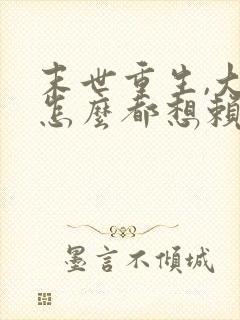 末世重生,大
怎麼都想賴
墨言不傾城